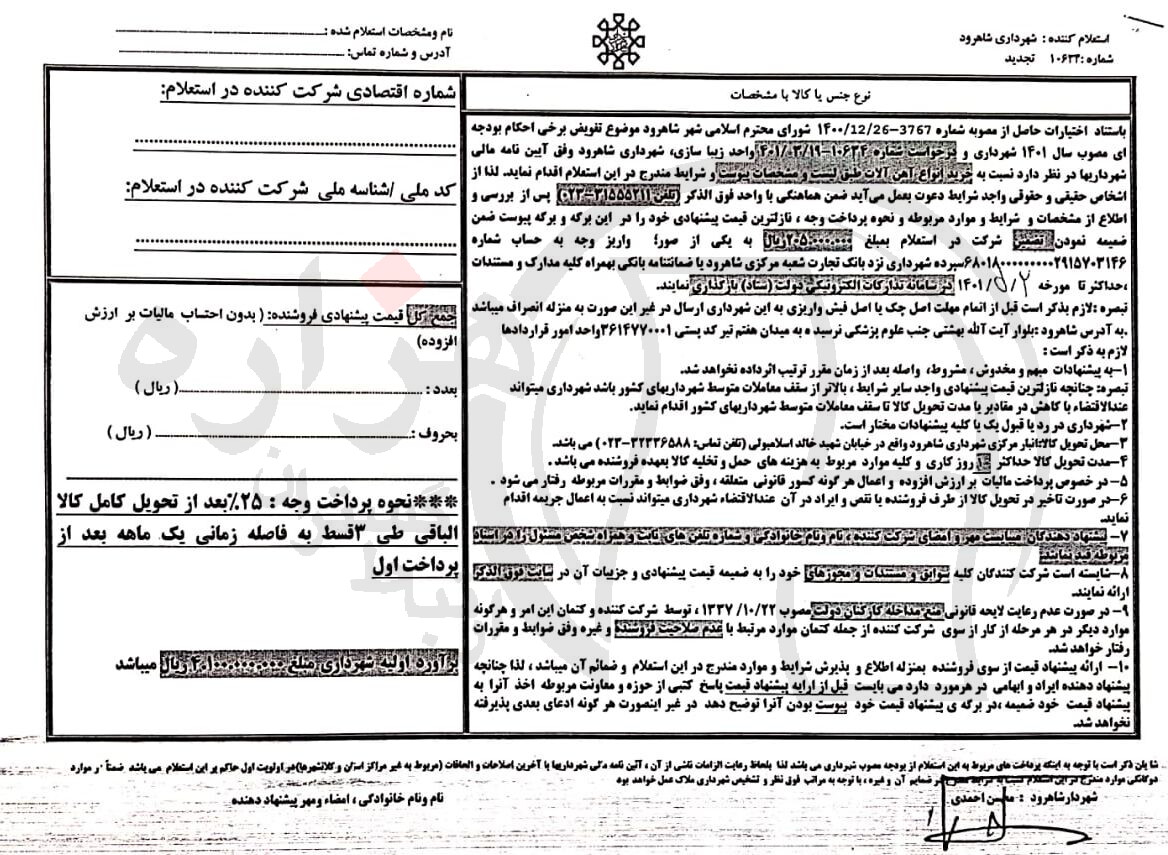 استعلام کننده : شهرداری شاهرود
شماره :۱۰۶۳۴ تجدید
نام ومشخصات استعلام شده :
آدرس و شماره تماس:
نوع جنس یا کالا با مشخصات
باستناد اختیارات حاصل از مصوبه شماره 3767-1400/12/26 شورای محترم اسلامی شهر شاهرود موضوع تفویض برخی احکام بودجه
ای مصوب سال ۱۴۰۱ شهرداری و درخواست شماره ۱۰۶۳۴-۴۰۱/۰۳/۱۹ واحد زیبا سازی، شهرداری شاهرود وفق آیین نامه مالی
شهرداریها در نظر دارد نسبت به خرید انواع آهن آلات طبق لیست و مشخصات پیوست و شرایط مندرج در این استعلام اقدام نماید. لذا از
اشخاص حقیقی و حقوقی واجد شرایط دعوت بعمل می‌آید ضمن هماهنگی با واحد فوق الذکر (تلفن ۳۱۵۵۵۲۱۱-۰۲۳) پس از بررسی و
اطلاع از مشخصات و شرایط و موارد مربوطه و نحوه پرداخت وجه ، نازلترین قیمت پیشنهادی خود را در این برگه و برگه پیوست ضمن
ضمیمه نمودن تضمین شرکت در استعلام بمبلغ ۲۰۵،۰۰۰،۰۰۰ ریال به یکی از صور؛ واریز وجه به حساب شماره
۶۸۰۱۸۰۰۰۰۰۰۰۰۰۲۹۱۵۷۰۳۱۴۶ سپرده شهرداری نزد بانک تجارت شعبه مرکزی شاهرود یا ضمانتنامه بانکی بهمراه کلیه مدارک و مستندات
،حداکثر تا مورخه ۱۴۰۱/۵/۲ در سامانه تدارکات الکترونیکی دولت (ستاد) بارگذاری نمایند.
تبصره :لازم بذکر است قبل از اتمام مهلت اصل چک یا اصل فیش واریزی به این شهرداری ارسال در غیر این صورت به منزله انصراف میباشد
.به آدرس شاهرود :بلوار آیت الله بهشتی جنب علوم پزشکی نرسیده به میدان هفتم تیر کد پستی ۳۶۱۴۷۷۰۰۰۱ واحد امور قراردادها
لازم به ذکر است :
۱-به پیشنهادات مبهم و مخدوش ، مشروط، واصله بعد از زمان مقرر ترتیب اثرداده نخواهد شد.
تبصره: چنانچه نازلترین قیمت پیشنهادی واجد سایر شرایط ، بالاتر از سقف معاملات متوسط شهرداریهای کشور باشد شهرداری میتواند
عندالاقتضاء با کاهش در مقادیر یا مدت تحویل کالا تا سقف معاملات متوسط شهرداریهای کشور اقدام نماید.
۲-شهرداری در رد یا قبول یک یا کلیه پیشنهادات مختار است.
۳-محل تحویل کالا:انبار مرکزی شهرداری شاهرود واقع در خیابان شهید خالد اسلامبولی (تلفن تماس: ۳۲۳۳۶۵۸۸-۰۲۳) می باشد.
۴-مدت تحویل کالا حداکثر ۱۰ روز کاری و کلیه موارد مربوط به هزینه های حمل و تخلیه کالا بعهده فروشنده می باشد .
۵-در خصوص پرداخت مالیات بر ارزش افزوده و اعمال هر گونه کسور قانونی متعلقه ، وفق ضوابط و مقررات مربوطه رفتار می شود .
۶-در صورت تاخیر در تحویل کالا از طرف فروشنده یا نقص و ایراد در آن عندالاقتضاء شهرداری میتواند نسبت به اعمال جریمه اقدام
نماید.
۷-پیشنهاد دهندگان میبایست مهر و امضای شرکت کننده ، نام ونام خانوادگی و شماره تلفن های ثابت و همراه شخص مسئول را در اسناد
مربوطه قید نمایند
۸-شایسته است شرکت کنندگان کلیه سوابق و مستندات و مجوزهای خود را به ضمیمه قیمت پیشنهادی و جزییات آن در سایت فوق الذکر
ارائه نمایند.
۹- در صورت عدم رعایت لایحه قانونی منع مداخله کارکنان دولت مصوب ۱۳۳۷/۱۰/۲۲ ، توسط شرکت کننده و کتمان این امر و هرگونه
موارد دیگر در هر مرحله از کار از سوی شرکت کننده از جمله کتمان موارد مرتبط با عدم صلاحیت فروشنده و غیره وفق ضوابط و مقررات
رفتار خواهد شد.
۱۰- ارائه پیشنهاد قیمت از سوی فروشنده بمنزله اطلاع و پذیرش شرایط و موارد مندرج در این استعلام و ضمائم آن میباشد ، لذا چنانچه
پیشنهاد دهنده ایراد و ابهامی در هرمورد دارد می بایست قبل از ارایه پیشنهاد قیمت پاسخ کتبی از حوزه و معاونت مربوطه اخذ آنرا به
پیشنهاد قیمت خود ضمیمه ،در برگه ی پیشنهاد قیمت خود پیوست بودن آنرا توضیح دهد در غیر اینصورت هر گونه ادعای بعدی پذیرفته
نخواهد شد.
شماره اقتصادی شرکت کننده در استعلام:
کد ملی /شناسه ملی شرکت کننده در استعلام:
جمع کل قیمت پیشنهادی فروشنده: ( بدون احتساب مالیات بر ارزش
افزوده)
بعدد : ( ریال )
بحروف : ( ریال )
***نحوه پرداخت وجه : ۲۵٪بعد از تحویل کامل کالا
الباقی طی ۳قسط به فاصله زمانی یک ماهه بعد از
پرداخت اول
برآورد اولیه شهرداری مبلغ ۴،۱۰۰،۰۰۰،۰۰۰ ریال میباشد
شایان ذکر است با توجه به اینکه پرداخت های مربوط به این استعلام از بودجه مصوب شهرداری می باشد لذا بلحاظ رعایت الزامات ناشی از آن ، آئین نامه مالی شهرداریها با آخرین اصلاحات و الحاقات (مربوط به غیر مراکز استان و کلانشهرها)در اولویت اول حاکم بر این استعلام می باشد ضمناً در موارد
دوگانگی موارد مندرج در این استعلام نسبت به شرایط مندرج در ضمایم آن و غیره ، با توجه به مراتب فوق نظر و تشخیص شهرداری ملاک عمل خواهد بود
شهردار شاهرود : محسن احمدی
نام ونام خانوادگی ، امضاء ومهر پیشنهاد دهنده
هزاره